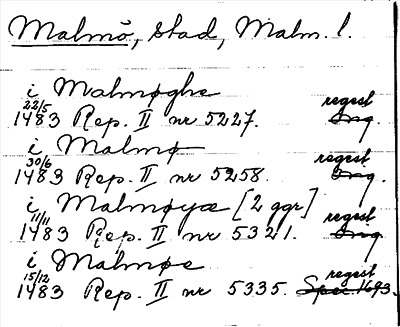 Malmö, stad, Malm. l.
i Malmøghe
22/5 1483 Rep. II nr 5227. regest Orig.
i Malmø
30/6 1483 Rep. II nr 5258. regest Orig.
i Malmøyæ [2 ggr]
11/11 1483 Rep. II nr 5321. regest Orig.
i Malmøe
15/12 1483 Rep. II nr 5335. regest 1693.